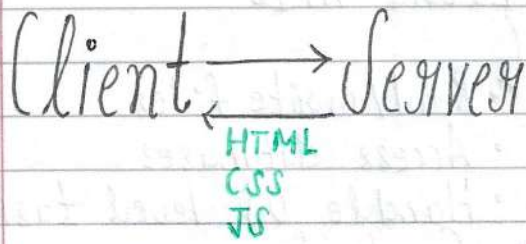 Client Server
HTML
CSS
JS